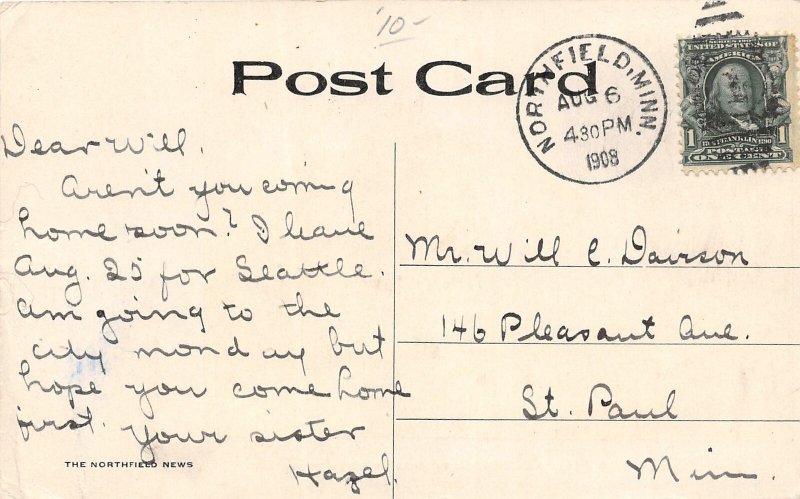 '10-
Post Card
NORTHFIELD, MINN.
AUG 6
430 PM
1908
SERIES 1902
UNITED STATES OF
AMERICA
1 1
POSTAGE
ONE CENT
Dear Will.
Aren't you coming
home soon? I leave
Aug. 25 for Seattle.
Am going to the
city monday but
hope you come home
first. Your sister
Hazel.
THE NORTHFIELD NEWS
Mr. Will C. Davison
146 Pleasant Ave.
St. Paul
Minn.